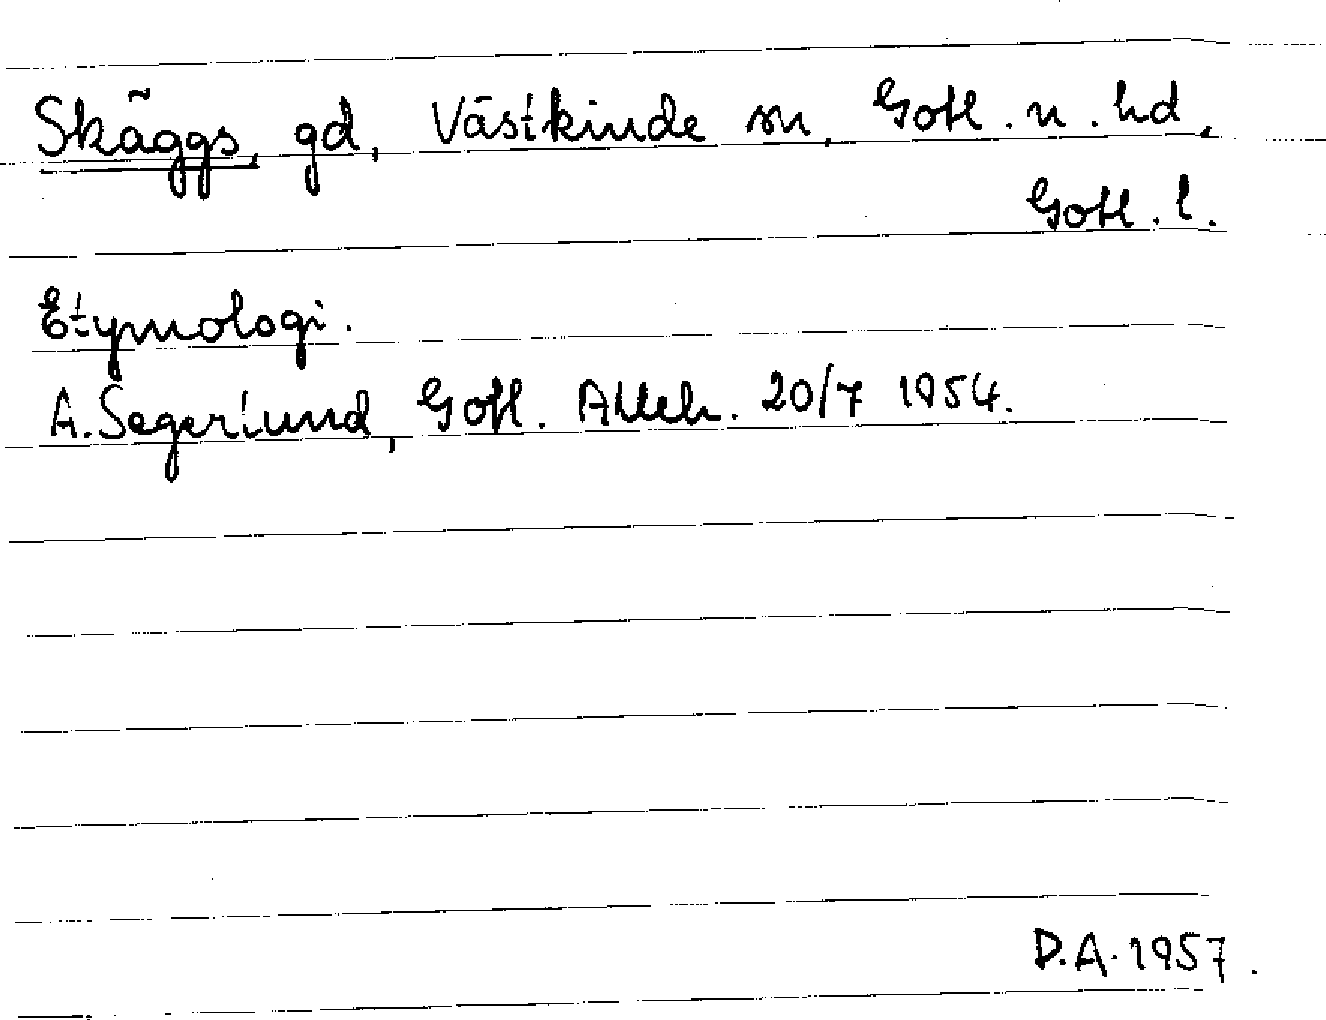 Skäggs, gd, Västkinde sn, Gotl. n. hd,
Gotl. l.
Etymologi.
A. Segerlund, Gotl. Alleh. 20/7 1954.
D.A. 1957.